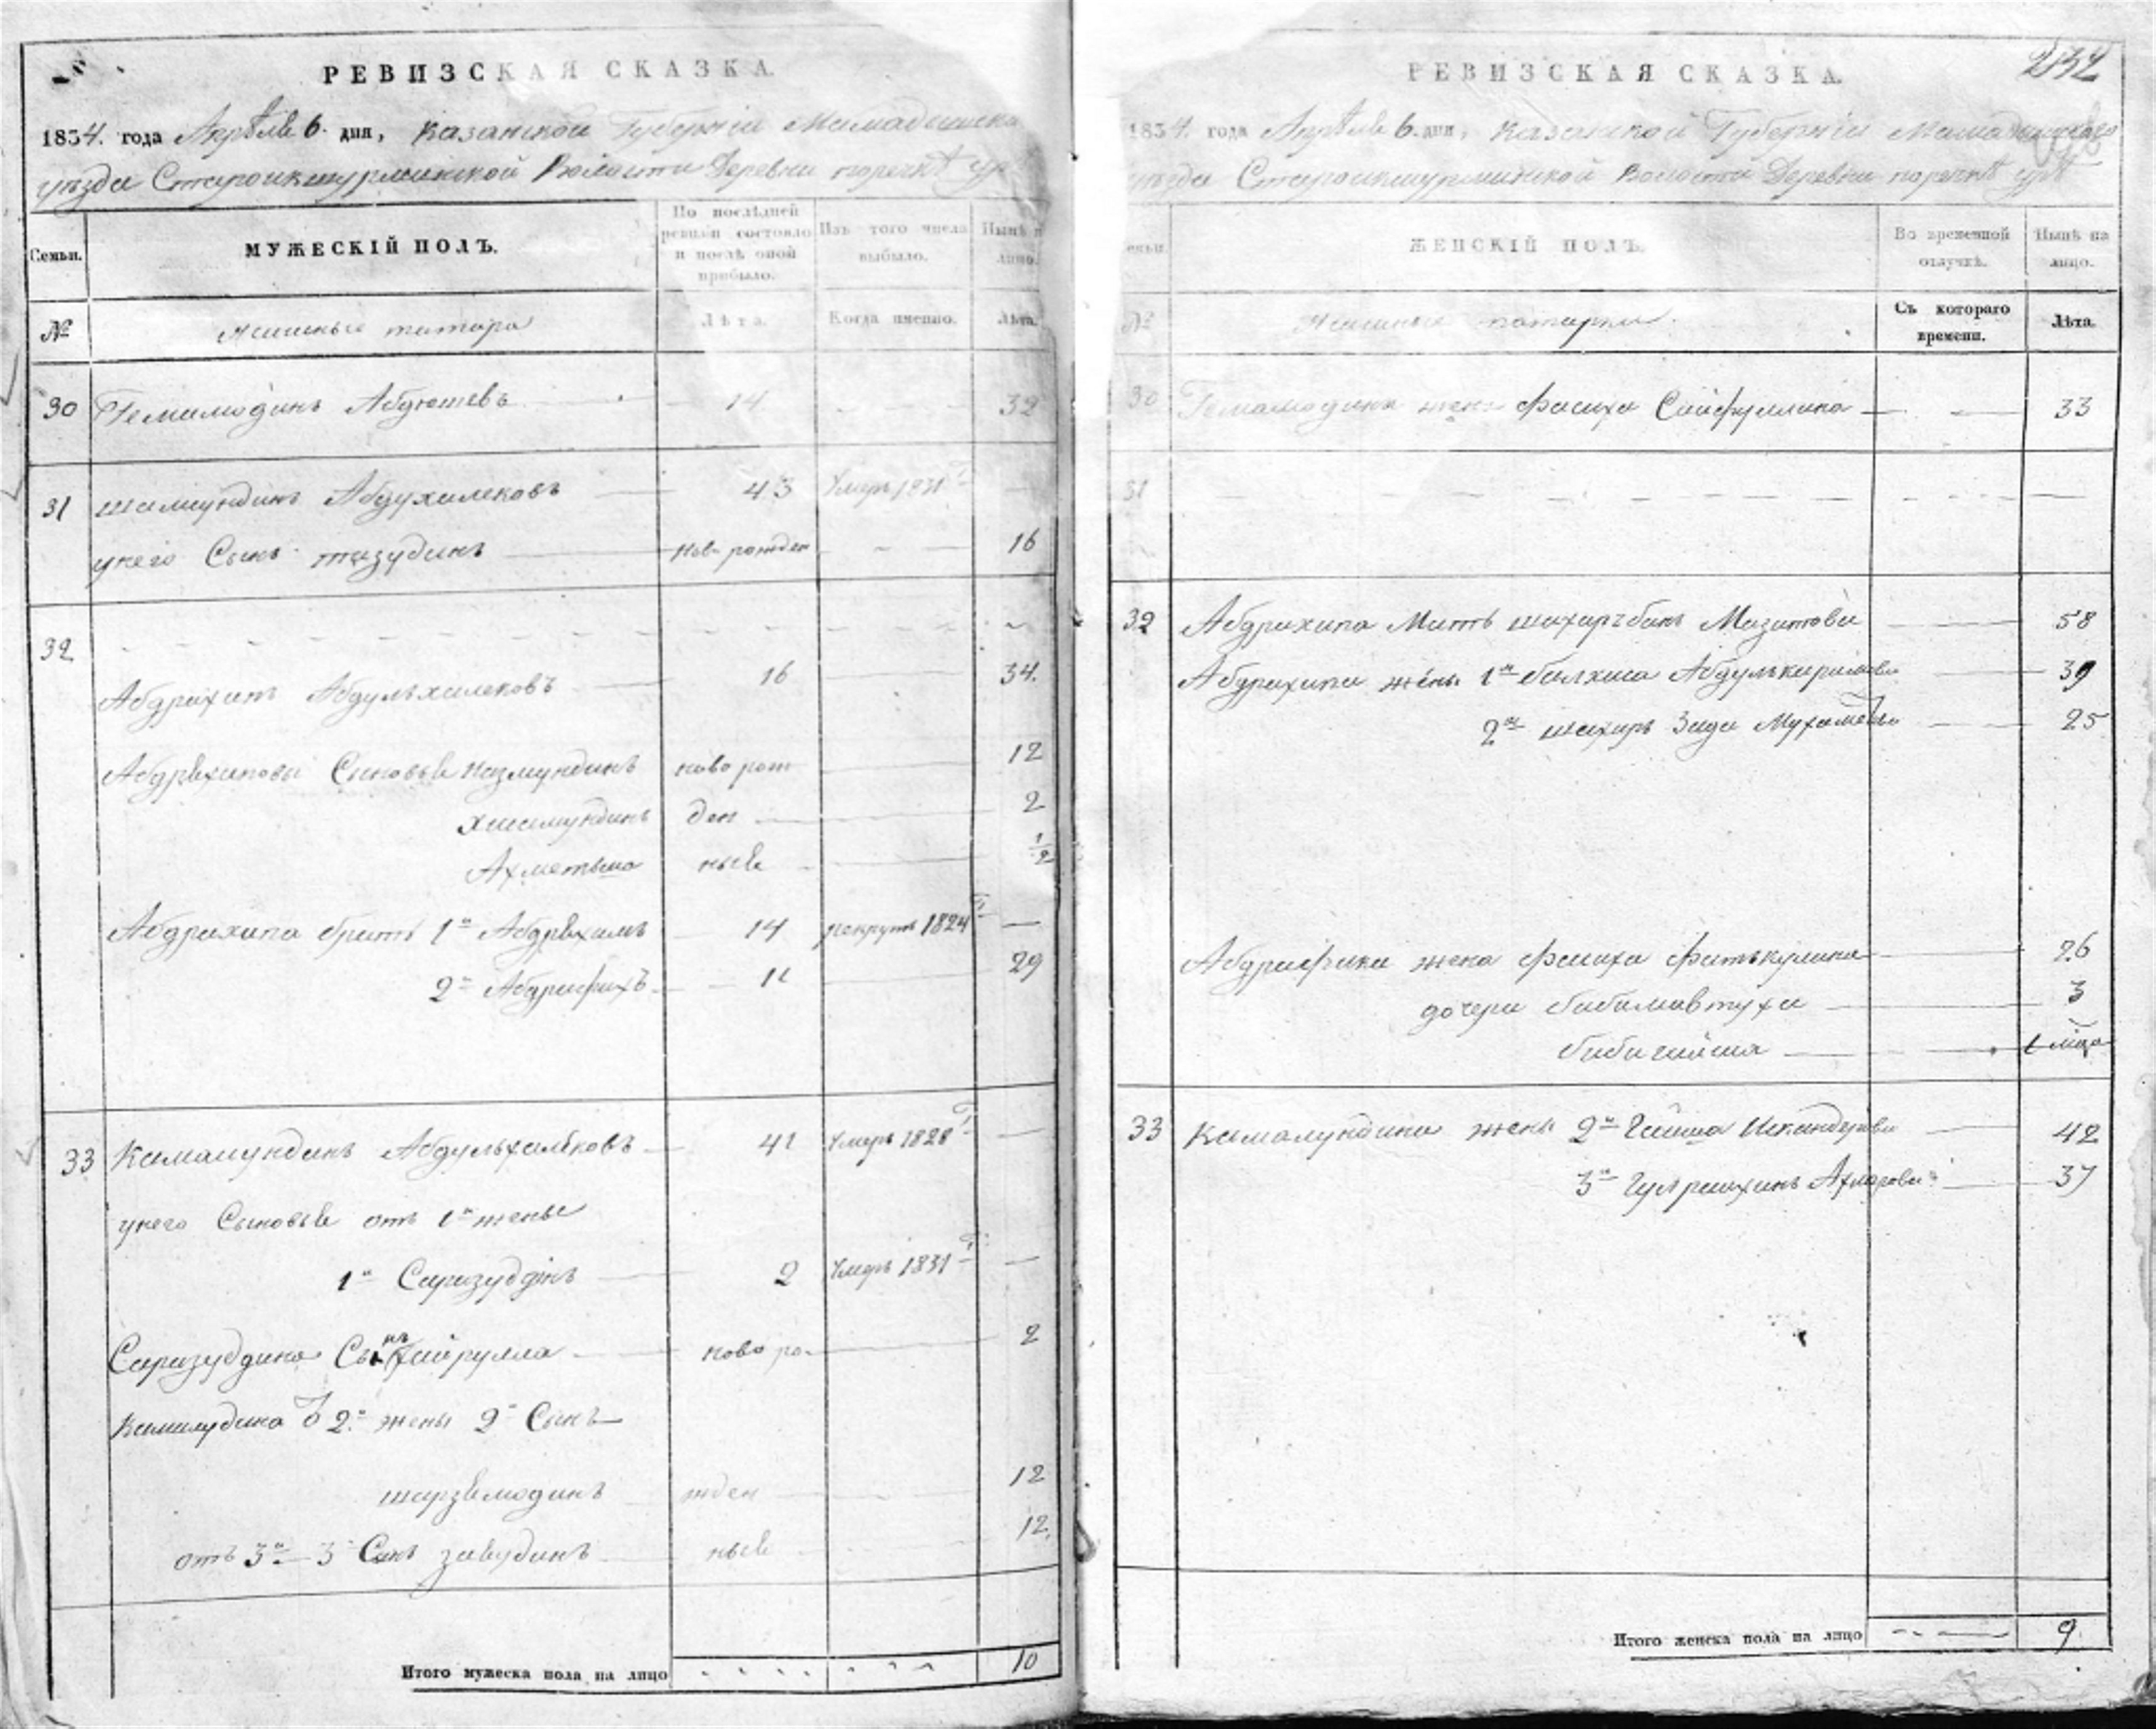 РЕВИЗСКАЯ СКАЗКА.
1834. года Апрѣля 6. дня, Казанской Губерніи Мамадышска
уѣзда Староикшурминской Волости Деревни поречкѣ
Семьи.
МУЖЕСКІЙ ПОЛЪ.
По послѣдней ревизіи состояло и послѣ оной прибыло.
Изъ того числа выбыло.
Нынѣ на лицо.
№
Ясашные татара
Лѣта.
Когда именно.
Лѣта.
30 Гемамодинъ Абдюшевъ 14 32
31 Шамиундинъ Абдухалековъ 43 Умеръ 1831 Г
унего Сынъ тазудинъ Нов рожден 16
32
Абдрахипъ Абдульхалековъ 16 34.
Абдрахиповы Сыновья Назмундинъ ново рож 12
Хисамундинъ ден 2
Ахметьша ныя 1/2
Абдрахипа братъ 1й Абдряхимъ 14 рекрутъ 1824 Г
2й Абдрафихъ 11 29
33 Камалундинъ Абдульхалѣковъ 41 Умеръ 1828 Г
унего Сыновья отъ 1й жены
1й Сиразуддинъ 2 Умеръ 1831 Г
Сиразуддина Сынъ Хайрулла ново ро 2
Камалудина о 2й жены 2й Сынъ
шарзямодинъ жден 12
отъ 3й 3 Сынъ завудинъ ныя 12.
Итого мужеска пола на лицо 10
РЕВИЗСКАЯ СКАЗКА.
232
1834. года Апрѣля 6. дня, Казанской Губерніи Мамадышскаго
уѣзда Староикшурминской Волости Деревни поречкѣ
Семьи.
ЖЕНСКІЙ ПОЛЪ.
Во временной отлучкѣ.
Нынѣ на лицо.
№
Ясашные татарки.
Съ котораго времени.
Лѣта.
30 Гемамодина жена Фасиха Сайфуллина 33
31
32 Абдрахипа Мать шахарбан Мазитова 58
Абдрахипа жены 1я балхиса Абдулькаримова 39
2я шахиръ Зада Мухаметева 25
Абдрафика жена Фасиха Фатькулина 26
дочери бибимавтуха 3
биби гайша
33 Камалундина жены 2я Гайша Искандерова 42
3я Гулраихинъ Ахмерова 37
Итого женска пола на лицо 9